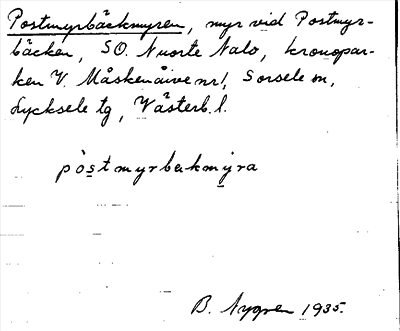 Postmyrbäckmyren, myr vid Postmyr-
bäcken, SO. Nuorte Nalo, kronopar-
ken V. Måskenåive nr 1, Sorsele sn,
Lycksele tg, Västerb. l.
pòstmyrbækmýra
B. Nygren 1935.